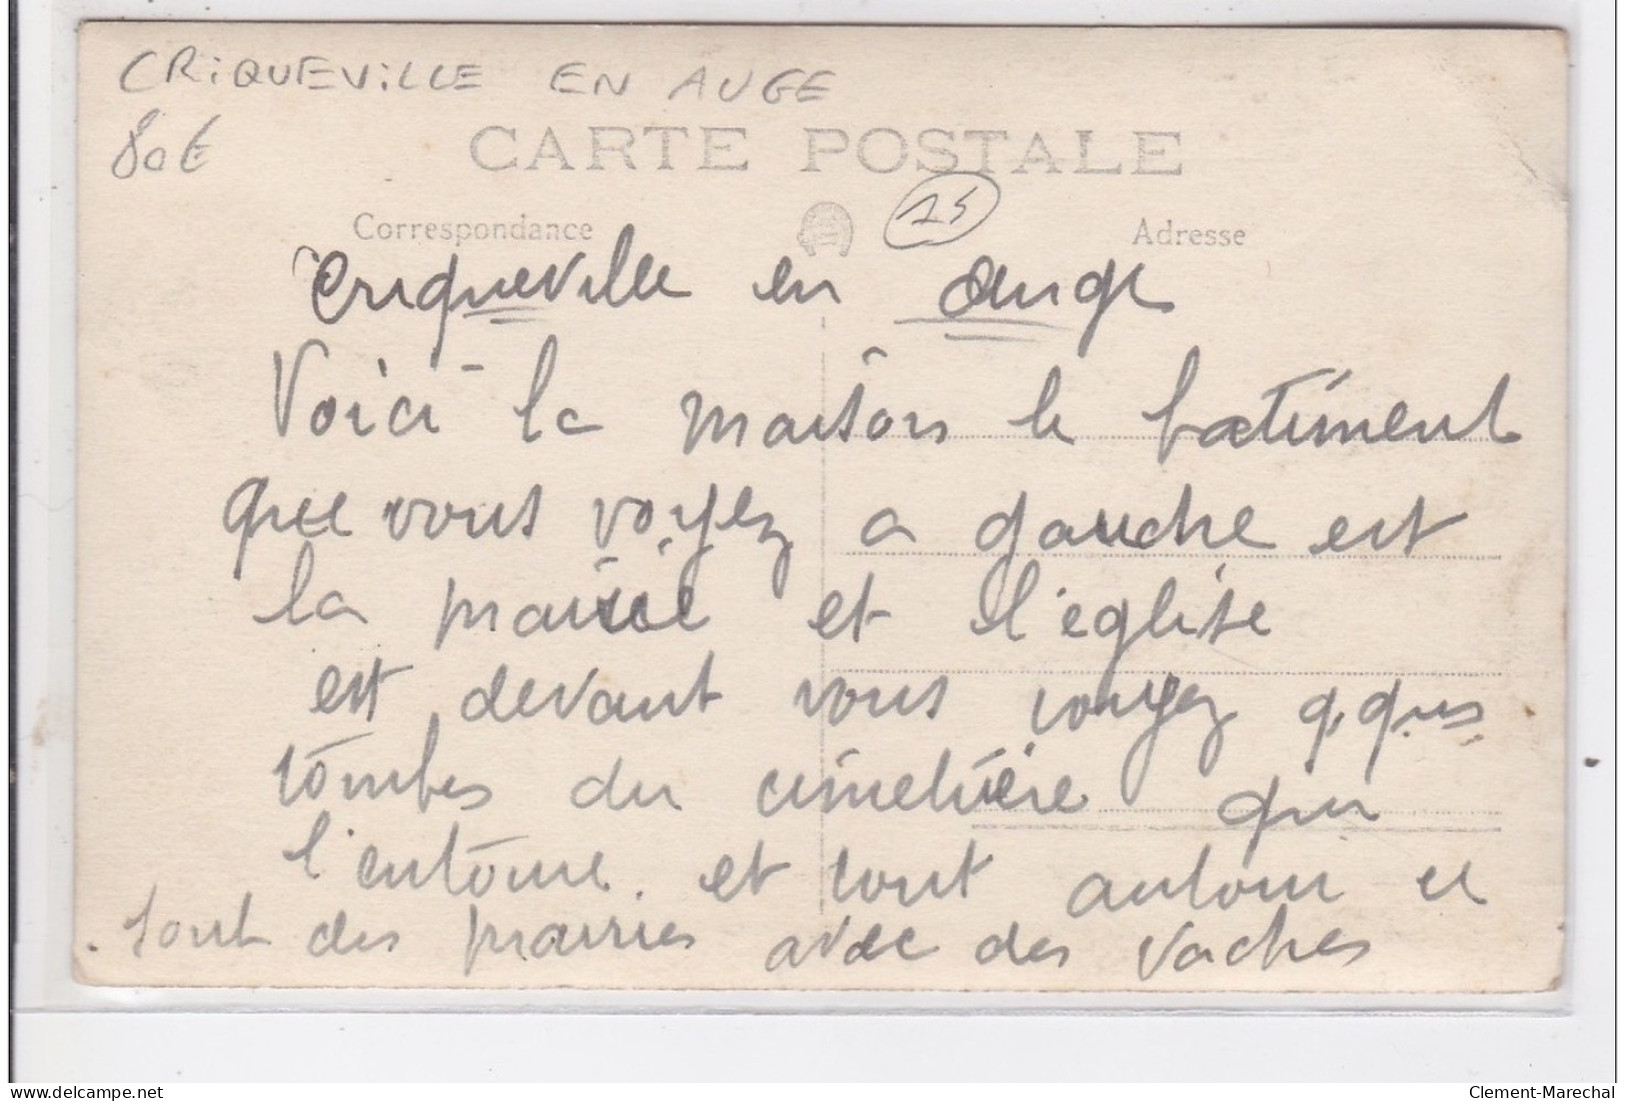 CRiQUEViLLE EN AUGE
80€
CARTE POSTALE
25
Correspondance
Adresse
Criqueville en Auge
Voici la maison le batiment
que vous voyez a gauche est
la mairie et l'eglise
est devant vous voyez qques
tombes du cimetière qui
l'entoure. et tout autour ce
sont des prairies avec des vaches
delcampe.net
Clement-Marechal